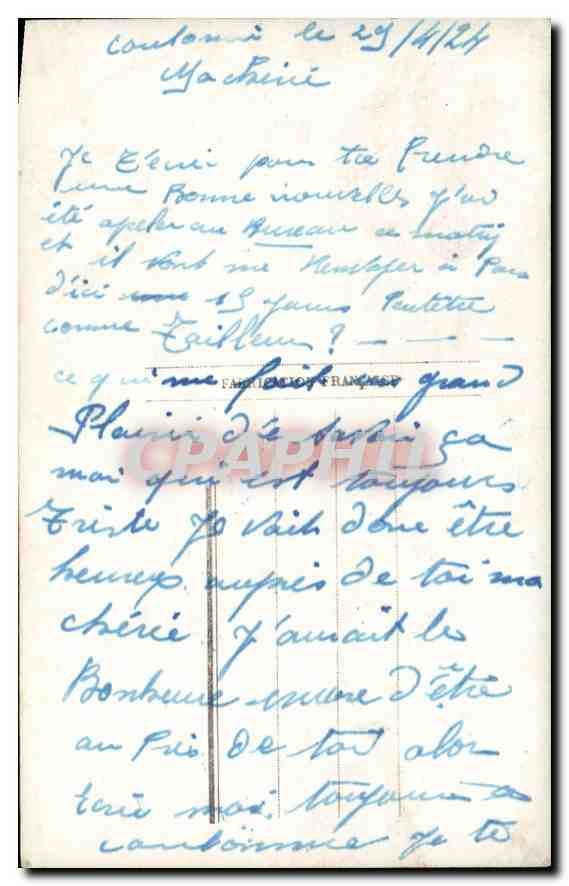 le 29/4/24
Ma chérie
Je t'écri pour te Prendre
une Bonne nouvelles J'ai
été apeler au Bureau ce matin
et il vont me à Paris
d'ici une 15 jours Peutetre
comme Tailleur? - - - -
ce qui me fait un grand
FABRICATION FRANÇAISE
Plaisir d'être ça
CPAPHIL
moi qui est toujours
Triste Je vait donc être
heureux auprès de toi ma
chérie J'aurait le
Bonheure encore d'être
au Près de toi alor
écrie moi toujours a
Je te